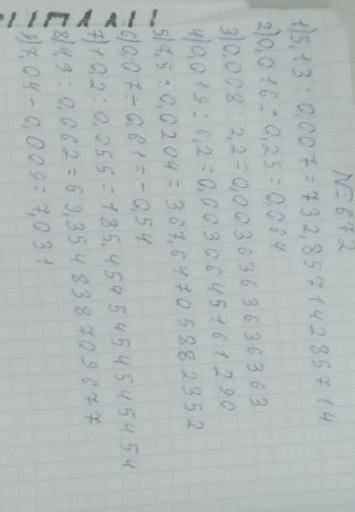 №672
1) 5,13 : 0,007 = 732857142857 14
2) 0,016 : 0,25 = 0,064
3) 0,008 : 22 = 0,00036363636363
4) 0,019 : 6,2 = 0,0030645161290
5) 7,5 : 0,0204 = 367,64705882352
6) 0,07 - 0,61 = -0,54
7) 10,2 : 0,055 = 185,4545454545454 54
8) 4,3 : 0,062 = 69,3548387096 77
9) 7,04 - 0,009 = 7,031